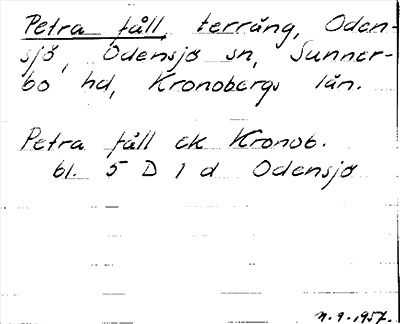 Petra fåll, terräng, Oden-
sjö, Odensjö sn, Sunner-
bo hd, Kronobergs län.
Petra fåll ek Kronob.
bl. 5 D 1 d Odensjö
n. 9. 1957.